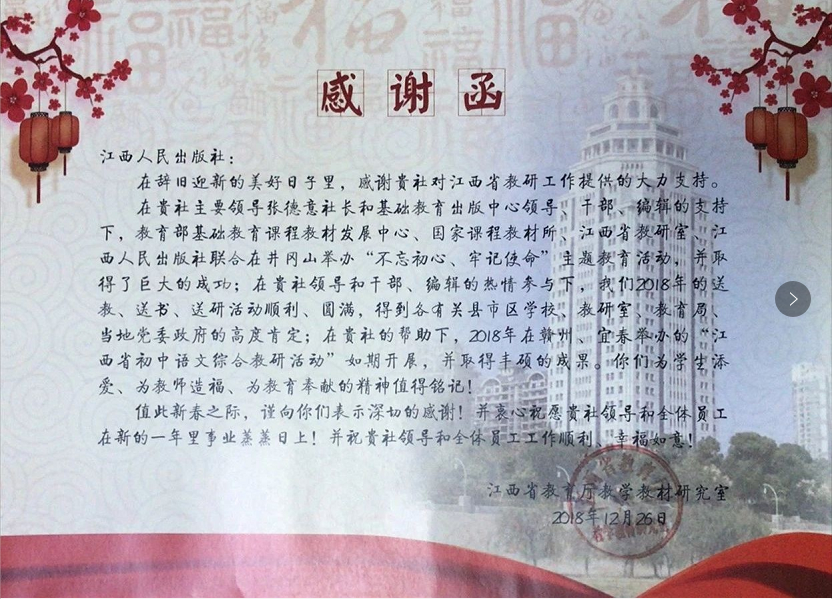 感谢函
江西人民出版社：
在辞旧迎新的美好日子里，感谢贵社对江西省教研工作提供的大力支持。
在贵社主要领导张德意社长和基础教育出版中心领导、干部、编辑的支持
下，教育部基础教育课程教材发展中心、国家课程教材所、江西省教研室、江
西人民出版社联合在井冈山举办“不忘初心、牢记使命”主题教育活动，并取
得了巨大的成功；在贵社领导和干部、编辑的热情参与下，我们2018年的送
教、送书、送研活动顺利、圆满，得到各有关县市区学校、教研室、教育局、
当地党委政府的高度肯定；在贵社的帮助下，2018年在赣州、宜春举办的“江
西省初中语文综合教研活动”如期开展，并取得丰硕的成果。你们为学生添
爱、为教师造福、为教育奉献的精神值得铭记！
值此新春之际，谨向你们表示深切的感谢！并衷心祝愿贵社领导和全体员工
在新的一年里事业蒸蒸日上！并祝贵社领导和全体员工工作顺利、幸福如意！
江西省教育厅教学教材研究室
2018年12月26日